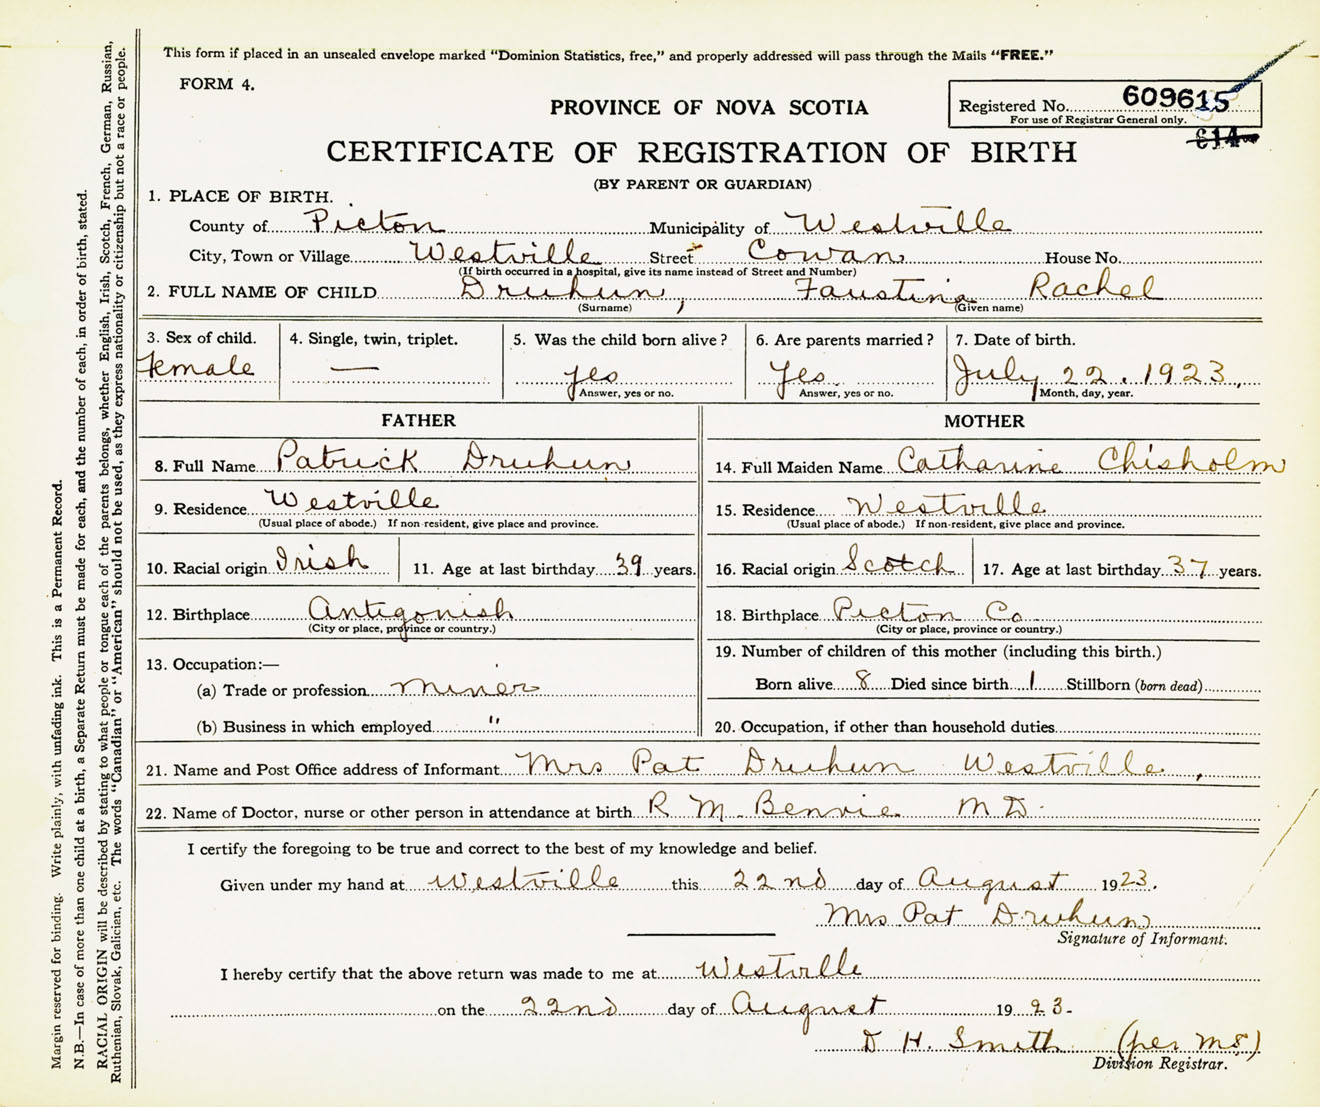 This form if placed in an unsealed envelope marked "Dominion Statistics, free," and properly addressed will pass through the Mails "FREE."
FORM 4.
PROVINCE OF NOVA SCOTIA
Registered No. 609615
For use of Registrar General only.
614
CERTIFICATE OF REGISTRATION OF BIRTH
(BY PARENT OR GUARDIAN)
1. PLACE OF BIRTH.
County of Picton Municipality of Westville
City, Town or Village Westville Street Cowan House No.
(If birth occurred in a hospital, give its name instead of Street and Number)
2. FULL NAME OF CHILD Druhun, Faustina Rachel
(Surname) (Given name)
3. Sex of child. 4. Single, twin, triplet. 5. Was the child born alive? 6. Are parents married? 7. Date of birth.
female — yes yes July 22. 1923.
Answer, yes or no. Answer, yes or no. Month, day, year.
FATHER MOTHER
8. Full Name Patrick Druhun 14. Full Maiden Name Catharine Chisholm
9. Residence Westville 15. Residence Westville
(Usual place of abode.) If non-resident, give place and province. (Usual place of abode.) If non-resident, give place and province.
10. Racial origin Irish 11. Age at last birthday 39 years. 16. Racial origin Scotch 17. Age at last birthday 37 years.
12. Birthplace Antigonish 18. Birthplace Picton Co
(City or place, province or country.) (City or place, province or country.)
13. Occupation:— 19. Number of children of this mother (including this birth.)
(a) Trade or profession miner Born alive 8 Died since birth 1 Stillborn (born dead)
(b) Business in which employed " 20. Occupation, if other than household duties
21. Name and Post Office address of Informant Mrs Pat Druhun Westville,
22. Name of Doctor, nurse or other person in attendance at birth R M. Benvie. M D.
I certify the foregoing to be true and correct to the best of my knowledge and belief.
Given under my hand at Westville this 22nd day of August 1923.
Mrs Pat Druhun
Signature of Informant.
I hereby certify that the above return was made to me at Westville
on the 22nd day of August 1923.
D H. Smith (per MS)
Division Registrar.
Margin reserved for binding. Write plainly, with unfading ink. This is a Permanent Record.
N.B.—In case of more than one child at a birth, a Separate Return must be made for each, and the number of each, in order of birth, stated.
RACIAL ORIGIN will be described by stating to what people or tongue each of the parents belongs, whether English, Irish, Scotch, French, German, Russian,
Ruthenian, Slovak, Galician, etc. The words "Canadian" or "American" should not be used, as they express nationality or citizenship but not a race or people.